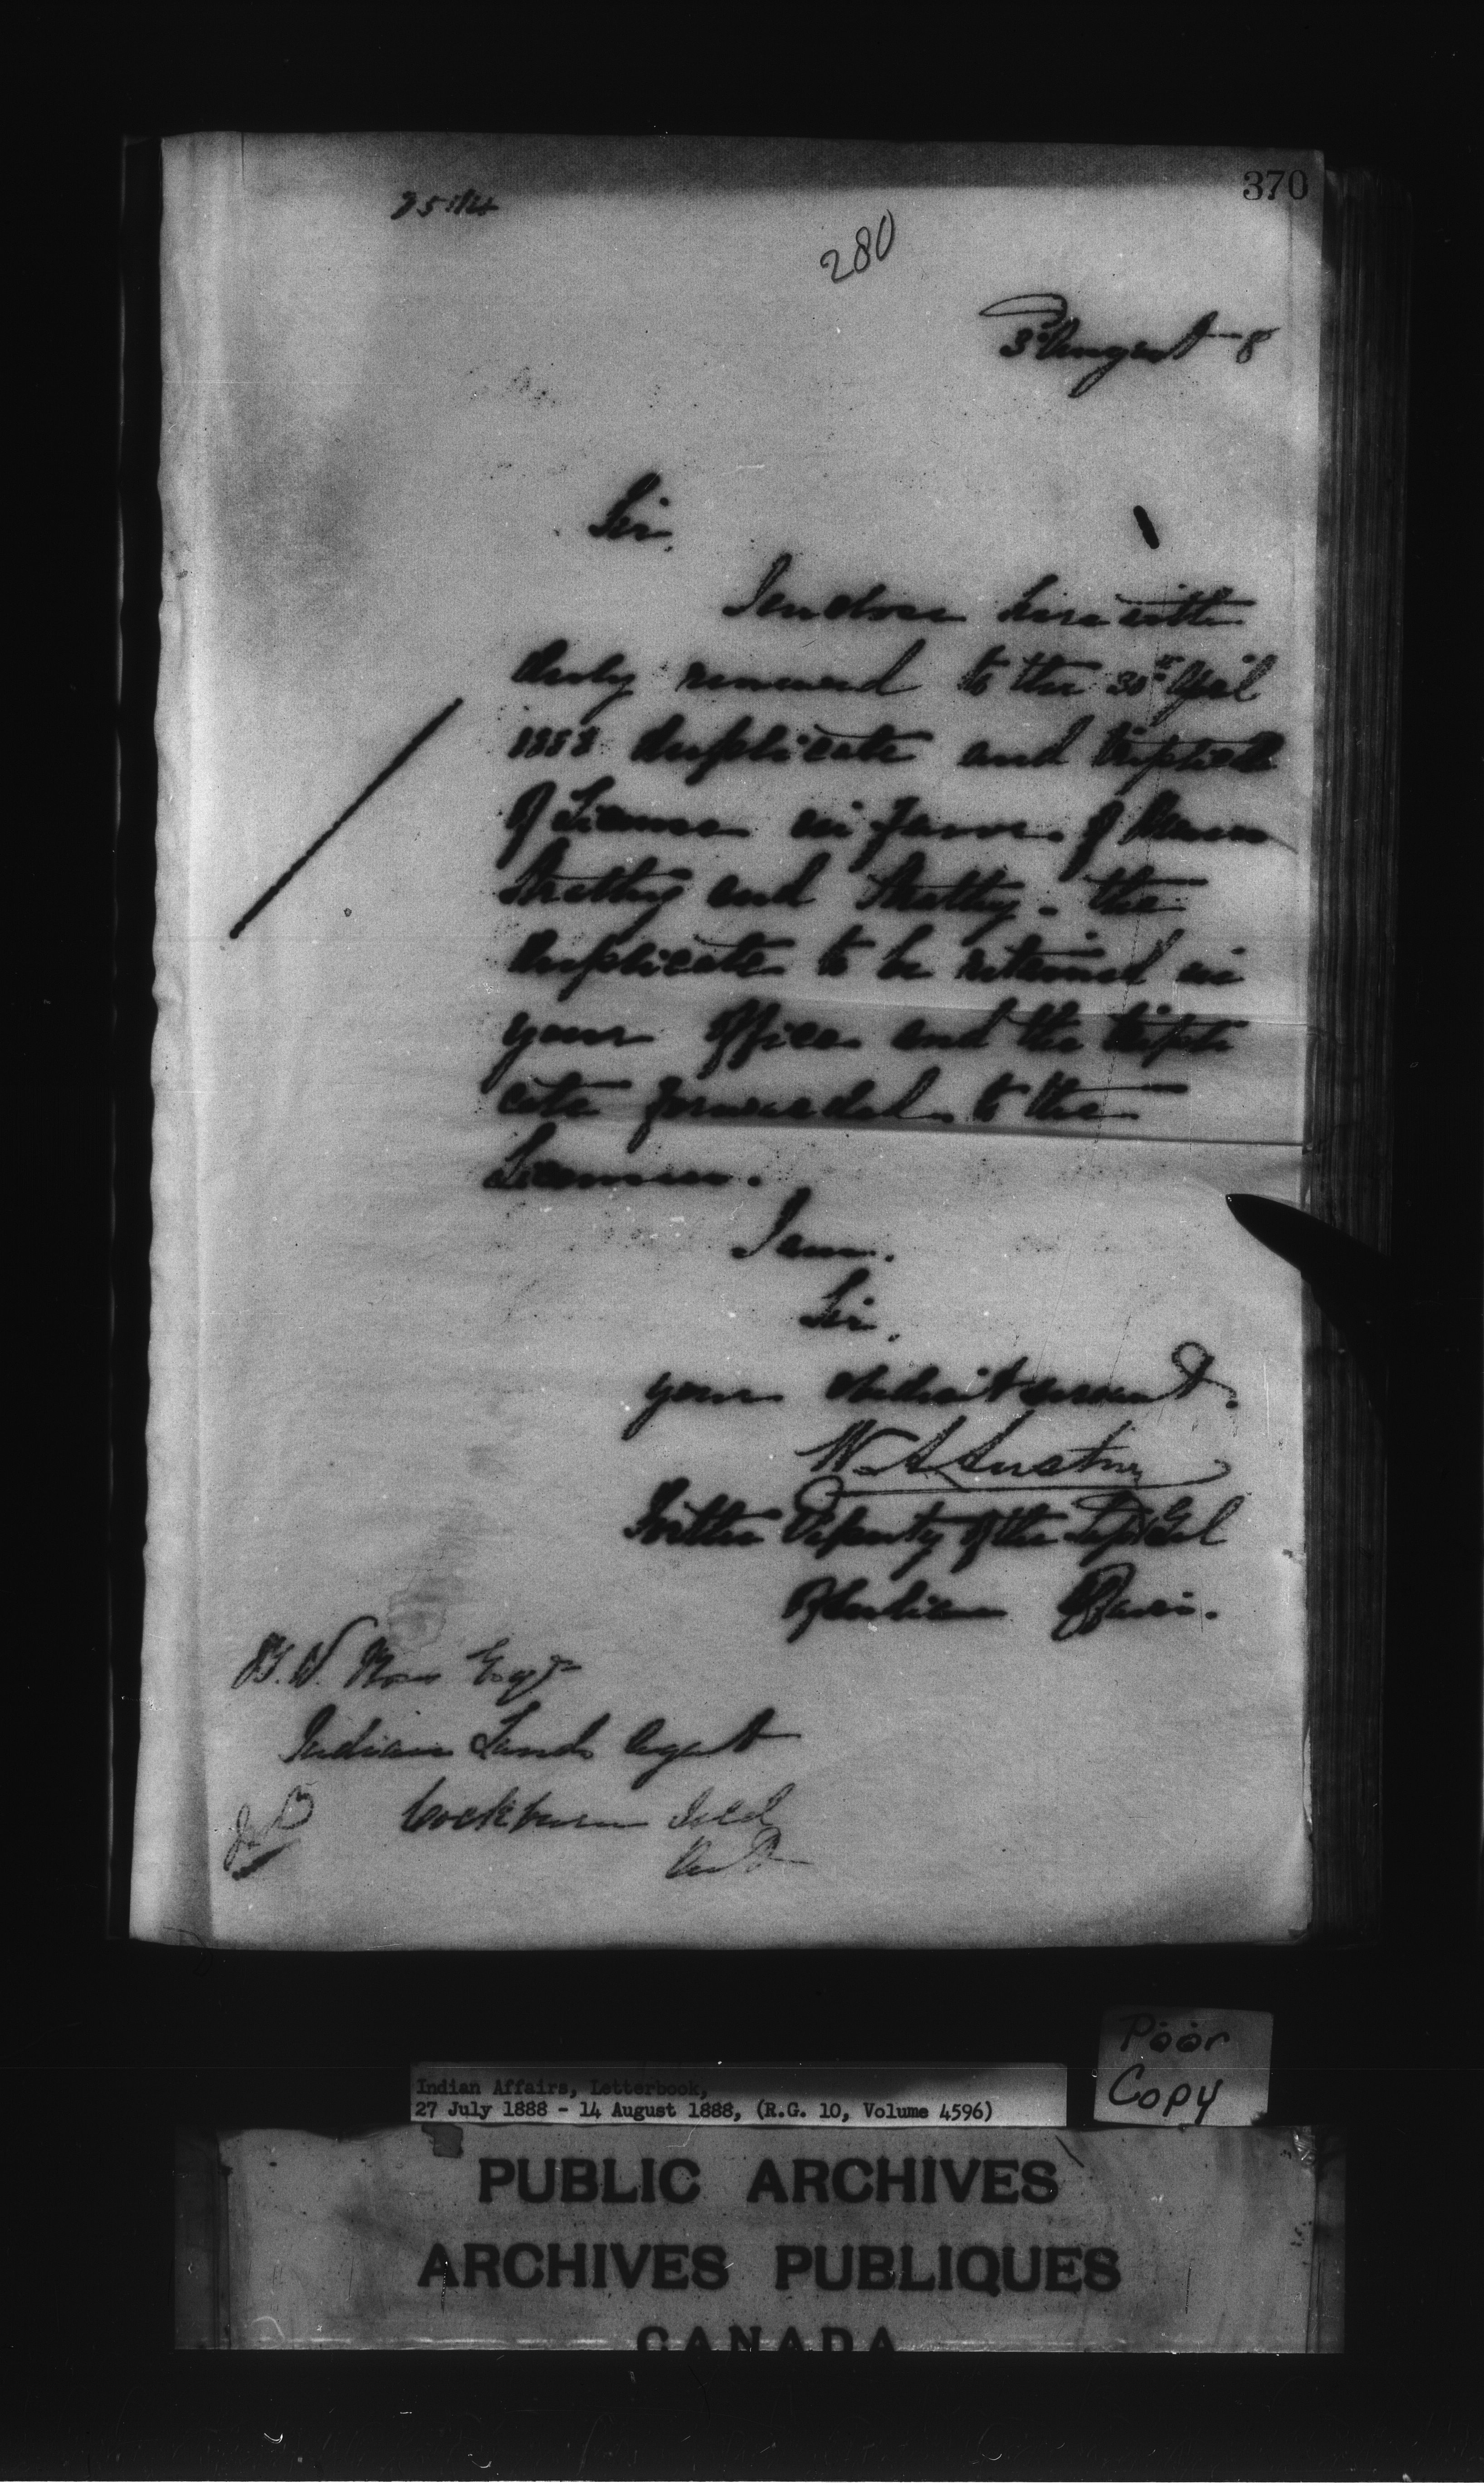 370
280
3d August 8
Sir,
I enclose herewith
duly renewed to the 30th April
1888 duplicate and triplicate
of License in favor of Messrs
and the
duplicate to be retained in
your office and the tripli
cate forwarded to the
Licensees.
I am.
Sir,
your obedient servant.
W A Austin
for the Deputy of the Supt Genl
of Indian Affairs.
B. W. Ross Esqr
Indian Lands Agent
Cockburn Isld
Ont
Poor
Copy
Indian Affairs, Letterbook,
27 July 1888 - 14 August 1888, (R.G. 10, Volume 4596)
PUBLIC ARCHIVES
ARCHIVES PUBLIQUES
CANADA